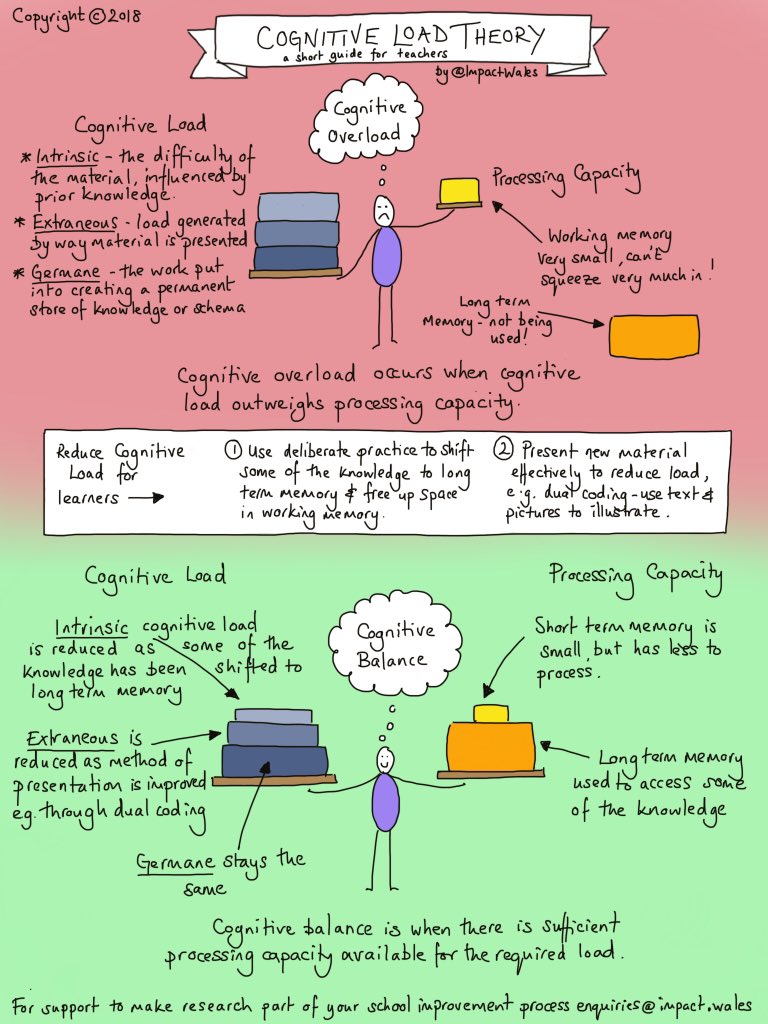 Copyright ©2018
COGNITIVE LOAD THEORY
a short guide for teachers
by @ImpactWales
Cognitive Overload
Cognitive Load
* Intrinsic - the difficulty of
the material, influenced by
prior knowledge.
* Extraneous - load generated
by way material is presented
* Germane - the work put
into creating a permanent
store of knowledge or schema
Processing Capacity
Working memory
very small, can't
squeeze very much in!
Long term
Memory - not being
used!
Cognitive overload occurs when cognitive
load outweighs processing capacity.
Reduce Cognitive
Load for
learners →
① Use deliberate practice to shift
some of the knowledge to long
term memory & free up space
in working memory.
② Present new material
effectively to reduce load,
e.g. dual coding - use text &
pictures to illustrate.
Cognitive Load
Intrinsic cognitive load
is reduced as some of the
knowledge has been shifted to
long term memory
Extraneous is
reduced as method of
presentation is improved
eg. through dual coding
Germane stays the
same
Cognitive
Balance
Processing Capacity
Short term memory is
small, but has less to
process.
Long term memory
used to access some
of the knowledge
Cognitive balance is when there is sufficient
processing capacity available for the required load.
For support to make research part of your school improvement process enquiries@impact.wales